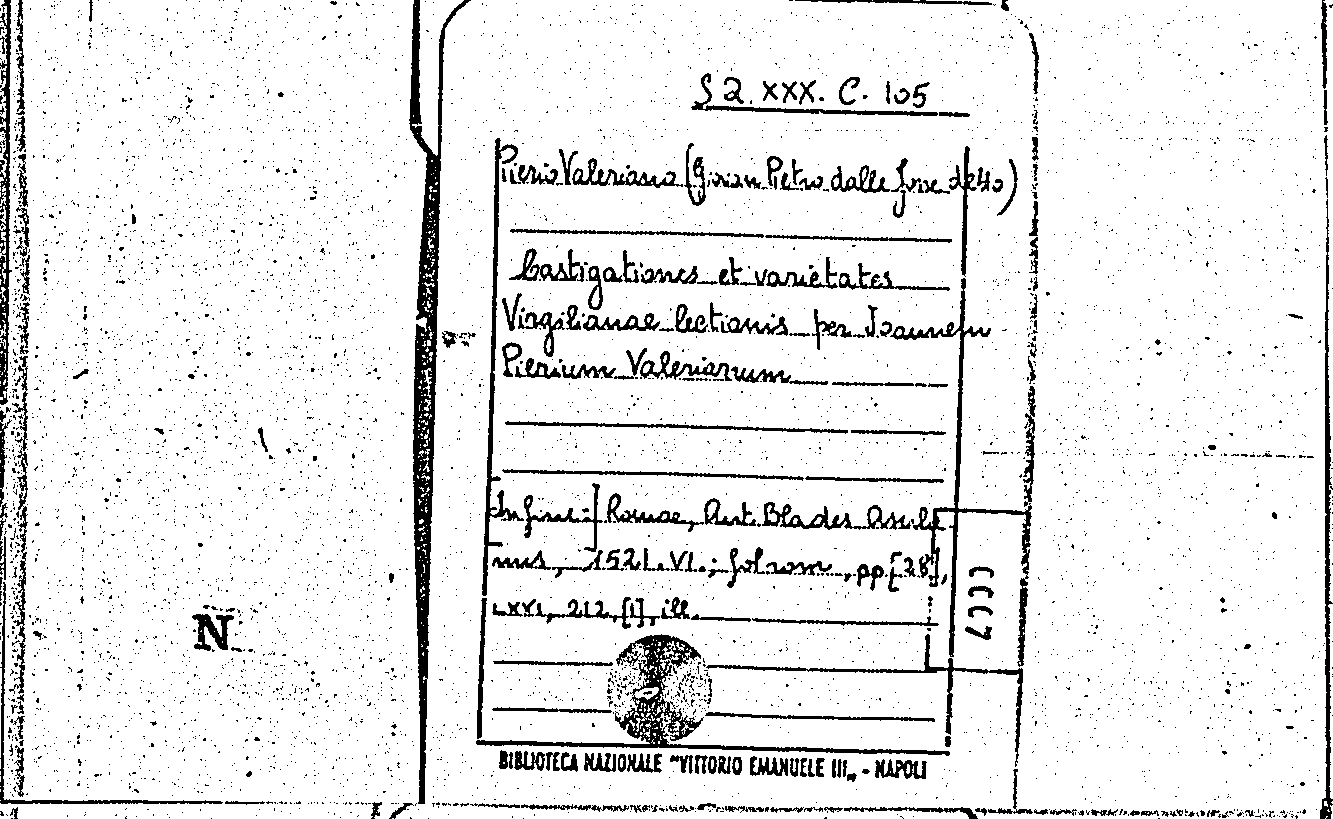 S Q. XXX. C. 105
Pierio Valeriano (Giovan Pietro dalle fosse detto)
Castigationes et varietates
Virgilianae lectionis per Joannem
Pierium Valerianum
[In fine:] Romae, Ant. Blades Asula
nus, 1521. VI.; fol rom, pp. [28],
LXXI, 212, [1], ill.
0007
N
BIBLIOTECA NAZIONALE "VITTORIO EMANUELE III„ - NAPOLI